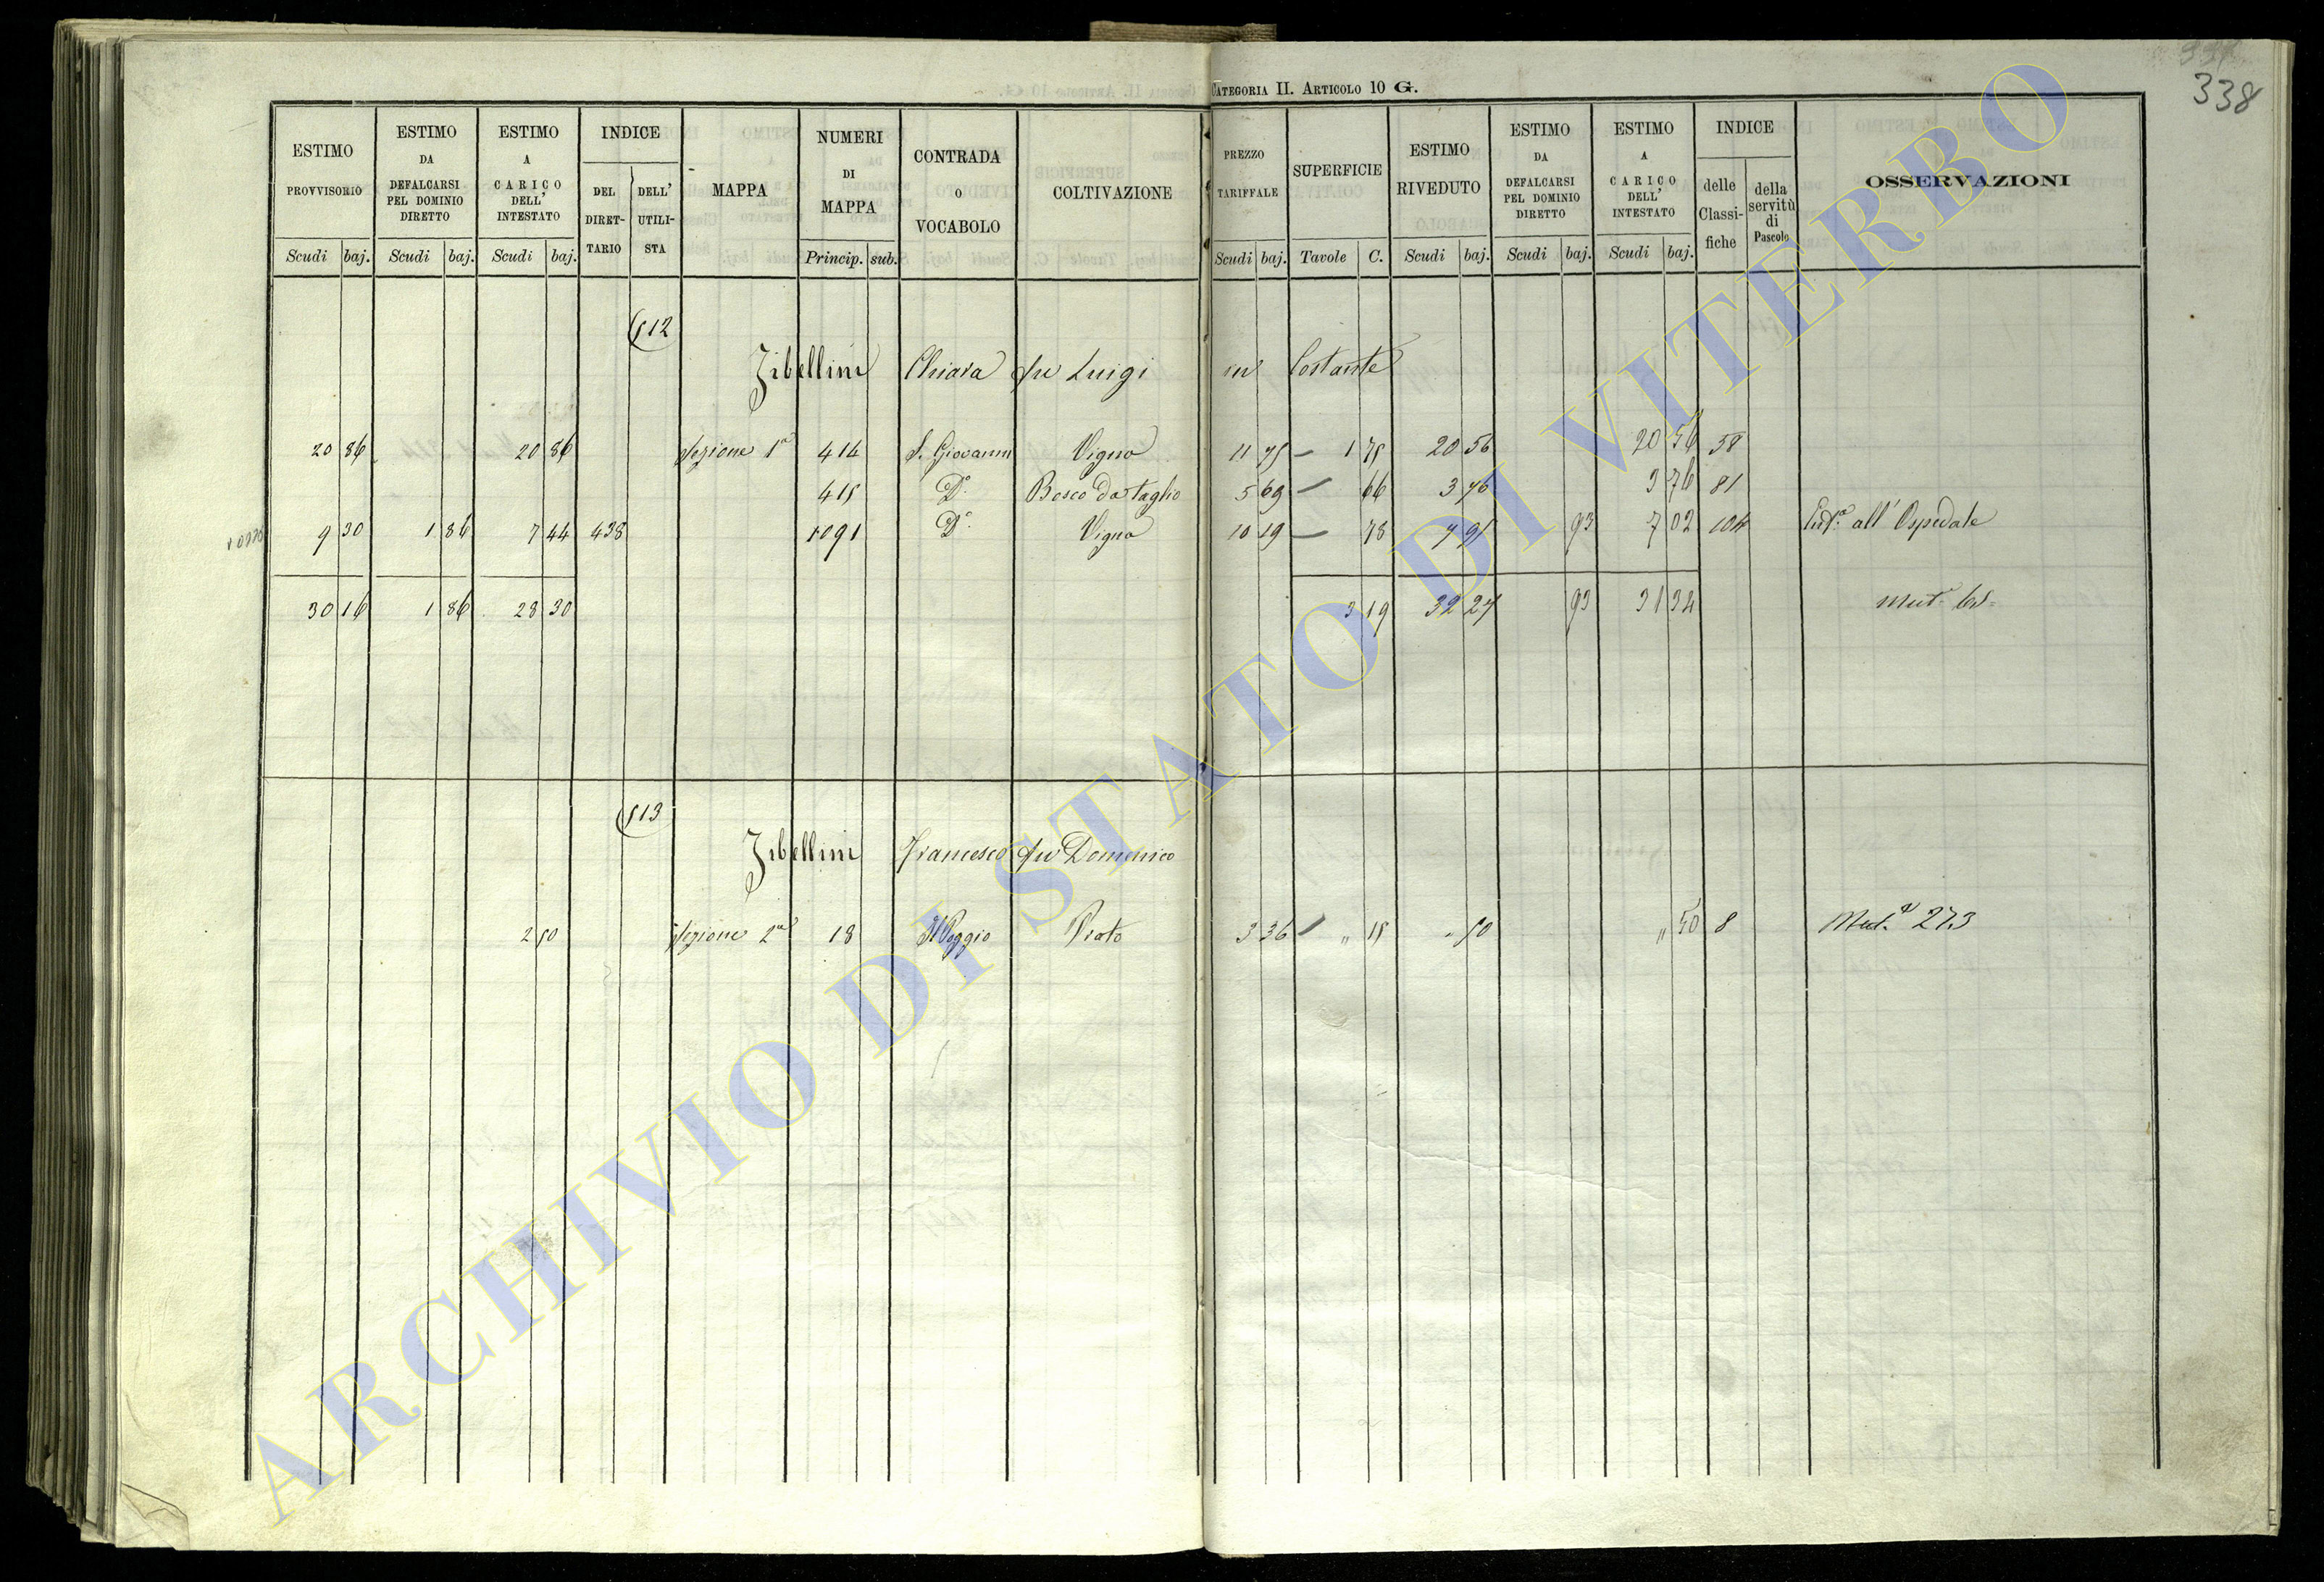 CATEGORIA II. ARTICOLO 10 G.
338
ESTIMO PROVVISORIO Scudi baj.
ESTIMO DA DEFALCARSI PEL DOMINIO DIRETTO Scudi baj.
ESTIMO A CARICO DELL' INTESTATO Scudi baj.
INDICE DEL DIRET-TARIO DELL' UTILI-STA
MAPPA
NUMERI DI MAPPA Princip. sub.
CONTRADA o VOCABOLO
COLTIVAZIONE
PREZZO TARIFFALE Scudi baj.
SUPERFICIE Tavole C.
ESTIMO RIVEDUTO Scudi baj.
ESTIMO DA DEFALCARSI PEL DOMINIO DIRETTO Scudi baj.
ESTIMO A CARICO DELL' INTESTATO Scudi baj.
INDICE delle Classi-fiche della servitù di Pascolo
OSSERVAZIONI
512
Zibellini Chiara fu Luigi in Costante
20 86 20 86 Sezione 1a 414 S. Giovanni Vigna 11 75 1 75 20 56 20 56 58
415 Do. Bosco da taglio 5 69 66 3 76 3 76 81
9 30 1 86 7 44 438 1091 Do. Vigna 10 19 78 7 95 93 7 02 104 all' Ospedale
30 16 1 86 28 30 3 19 32 27 93 31 34 Mut.
513
Zibellini Francesco fu Domenico
2 50 Sezione 2a 18 Il Poggio Prato 3 36 " 15 " 50 " 50 8 Mut.e 273
ARCHIVIO DI STATO DI VITERBO